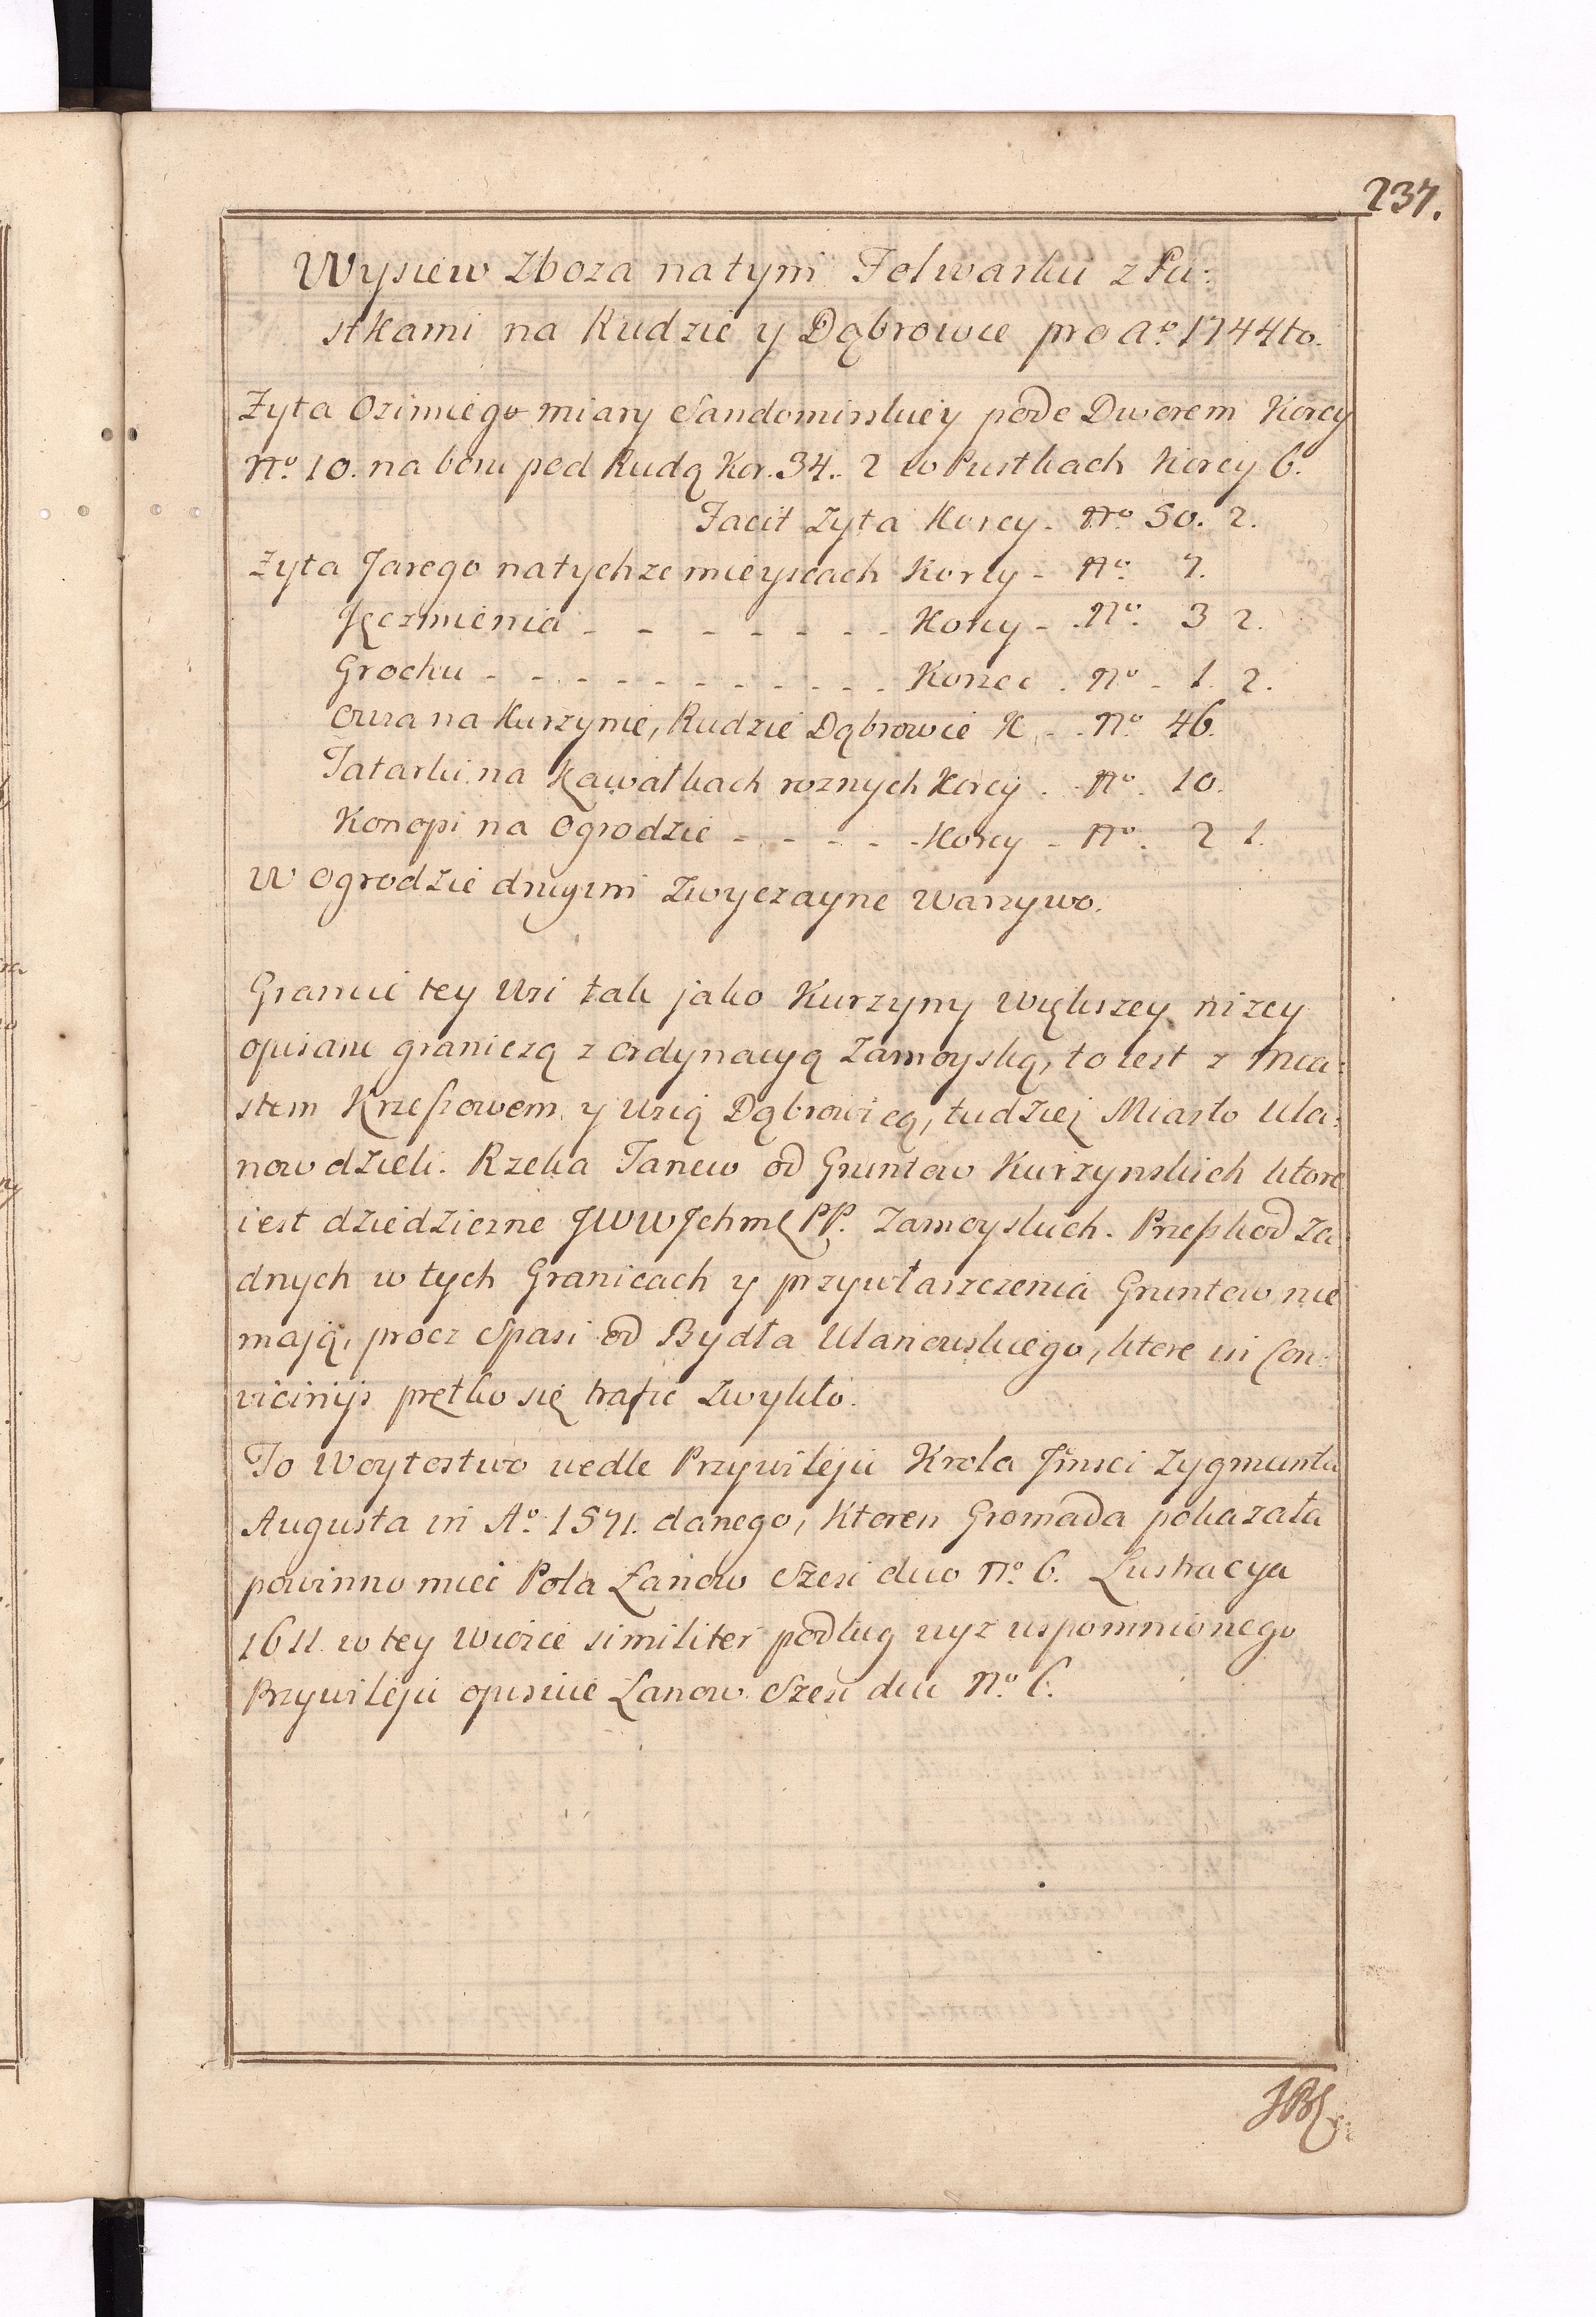 237.
Wysiew Zboza na tym Folwarku z Pu:
stkami na Rudzie y Dąbrowce pro Aº 1744to.
Zyta Ozimiego miary Sandomirskiey pode Dworem Korcy
Nº 10. na boru pod Rudą Kor. 34. 2 w Pustkach Korcy 6.
Facit Zyta Korcy - Nº 50. 2.
Zyta Jarego na tychze mieyscach Korcy - Nº 7.
Jęczmienia - - - - - - - Korcy - Nº 3 2.
Grochu - - - - - - - - - - Korzec. Nº - 1. 2.
Owsa na Kurzynie, Rudzie Dąbrowce K. - Nº 46.
Tatarki na Kawałkach roznych Korcy. - Nº 10.
Konopi na Ogrodzie - - - - - Korcy - Nº 2 1.
W Ogrodzie drugim Zwyczayne Warzywo.
Granice tey Wsi tak jako Kurzyny Większey nizey
opisane graniczą z Ordynacyą Zamoyską, to iest z Mia:
stem Krzeszowem y Wsią Dąbrowicą, tudziez Miasto Ula:
now dzieli. Rzeka Tanew od Gruntow Kurzynskich ktore
iest dziedziczne JWWJchmę PP. Zamoyskich. Przeszkod Za:
dnych w tych Granicach y przywłaszczenia Gruntow nie
mają, procz Spasi od Bydła Ulanowskiego, ktore in Con:
vicinijs prętko się trafic Zwykło.
To Woytostwo wedle Przywileju Krola Jmsci Zygmunta
Augusta in Aº 1571. danego, Ktoren Gromada pokazała
powinno miec Pola Łanow Szesi duo Nº 6. Lustracya
1611. w tey Wiosce similiter podług wyz wspomnionego
Przywileju opisuie Łanow Szesi du Nº 6.